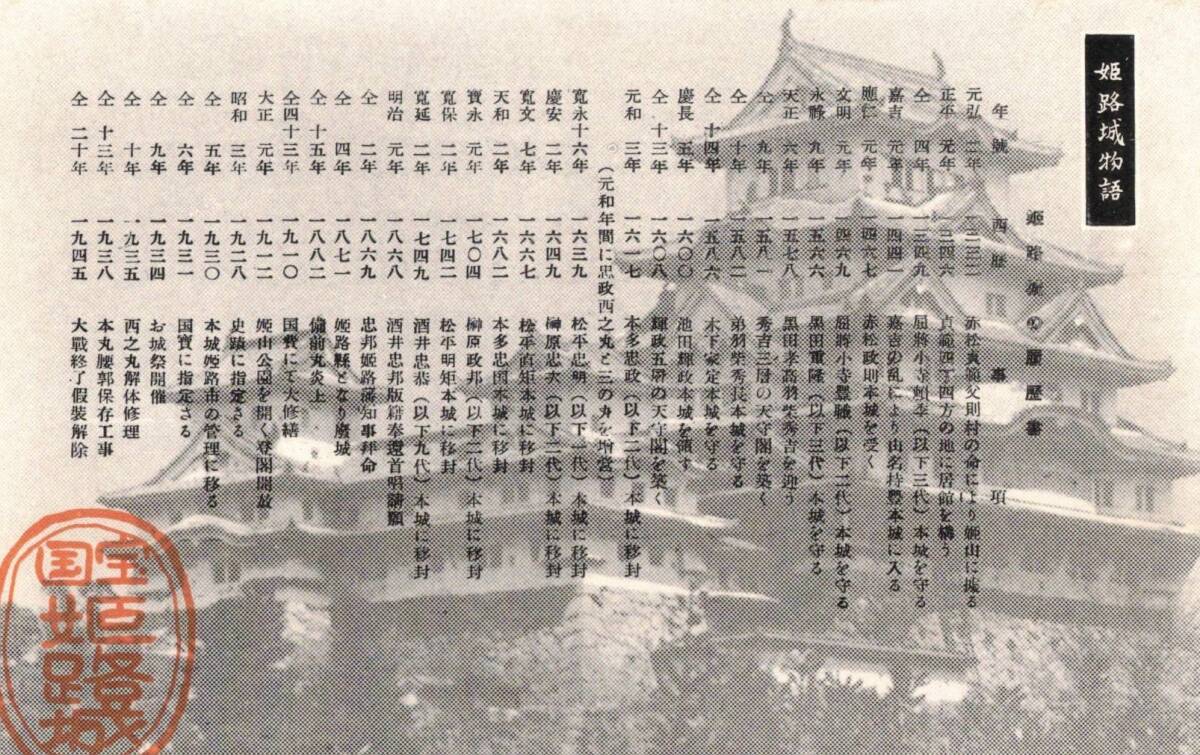 姫路城物語
姫路城の履歴書
年號 西歴 事項
元弘二年 一三三二 赤松貞範父則村の命により姫山に拠る
正平元年 一三四六 貞範四丁四方の地に居館を構う
仝四年 一三四九 屈將小寺頼季（以下三代）本城を守る
嘉吉元年 一四四一 嘉吉の乱により山名持豊本城に入る
應仁元年 一四六七 赤松政則本城を受く
文明元年 一四六九 屈將小寺豊職（以下二代）本城を守る
永祿九年 一五六六 黒田重隆（以下三代）本城を守る
天正六年 一五七八 黒田孝高羽柴秀吉を迎う
仝九年 一五八一 秀吉三层の天守閣を築く
仝十年 一五八二 弟羽柴秀長本城を守る
仝十四年 一五八六 木下家定本城を守る
慶長五年 一六〇〇 池田輝政本城を領す
仝十三年 一六〇八 輝政五層の天守閣を築く
元和三年 一六一七 本多忠政（以下二代）本城に移封
（元和年間に忠政西之丸と三の丸を増営）
寛永十六年 一六三九 松平忠明（以下二代）本城に移封
慶安二年 一六四九 榊原忠次（以下二代）本城に移封
寛文七年 一六六七 松平直矩本城に移封
天和二年 一六八二 本多忠国本城に移封
寳永元年 一七〇四 榊原政邦（以下二代）本城に移封
寛保二年 一七四二 松平明矩本城に移封
寛延二年 一七四九 酒井忠恭（以下九代）本城に移封
明治元年 一八六八 酒井忠邦版籍奉還首唱請願
仝二年 一八六九 忠邦姫路藩知事拜命
仝四年 一八七一 姫路縣となり廢城
仝十五年 一八八二 備前丸炎上
仝四十三年 一九一〇 国費にて大修繕
大正元年 一九一二 姫山公園を開く登閣開放
昭和三年 一九二八 史蹟に指定さる
仝五年 一九三〇 本城姫路市の管理に移る
仝六年 一九三一 国寳に指定さる
仝九年 一九三四 お城祭開催
仝十年 一九三五 西之丸解体修理
仝十三年 一九三八 本丸腰郭保存工事
仝二十年 一九四五 大戰終了假装解除
国宝
姫路城